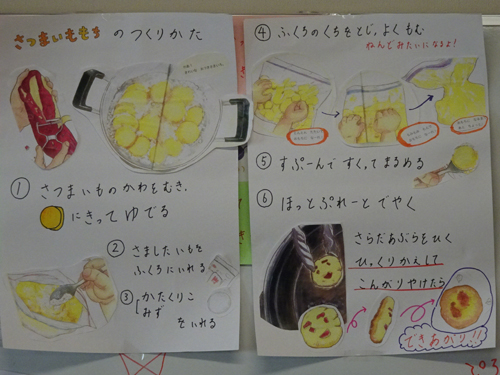 さつまいももちのつくりかた
① さつまいものかわをむき、
にきってゆでる
② さましたいもを
ふくろにいれる
③ かたくりこ
みず
をいれる
④ ふくろのくちをとじ、よくもむ
ねんどみたいになるよ！
⑤ すぷーんですくってまるめる
⑥ ほっとぷれーとでやく
さらだあぶらをひく
ひっくりかえして
こんがりやけたら
できあがり！！